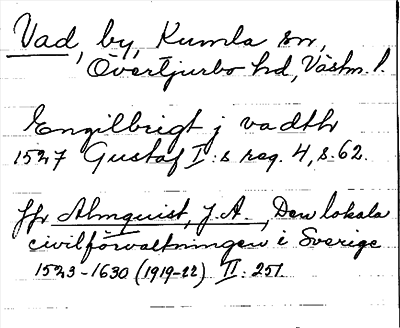 Vad, by, Kumla sn,
Övertjurbo hd, Västm. l.
Engilbrigt j vadthr
1527 Gustaf I:s reg. 4, s. 62.
jfr Almquist, J.A., Den lokala
civilförvaltningen i Sverige
1523-1630 (1919-22) II: 251.